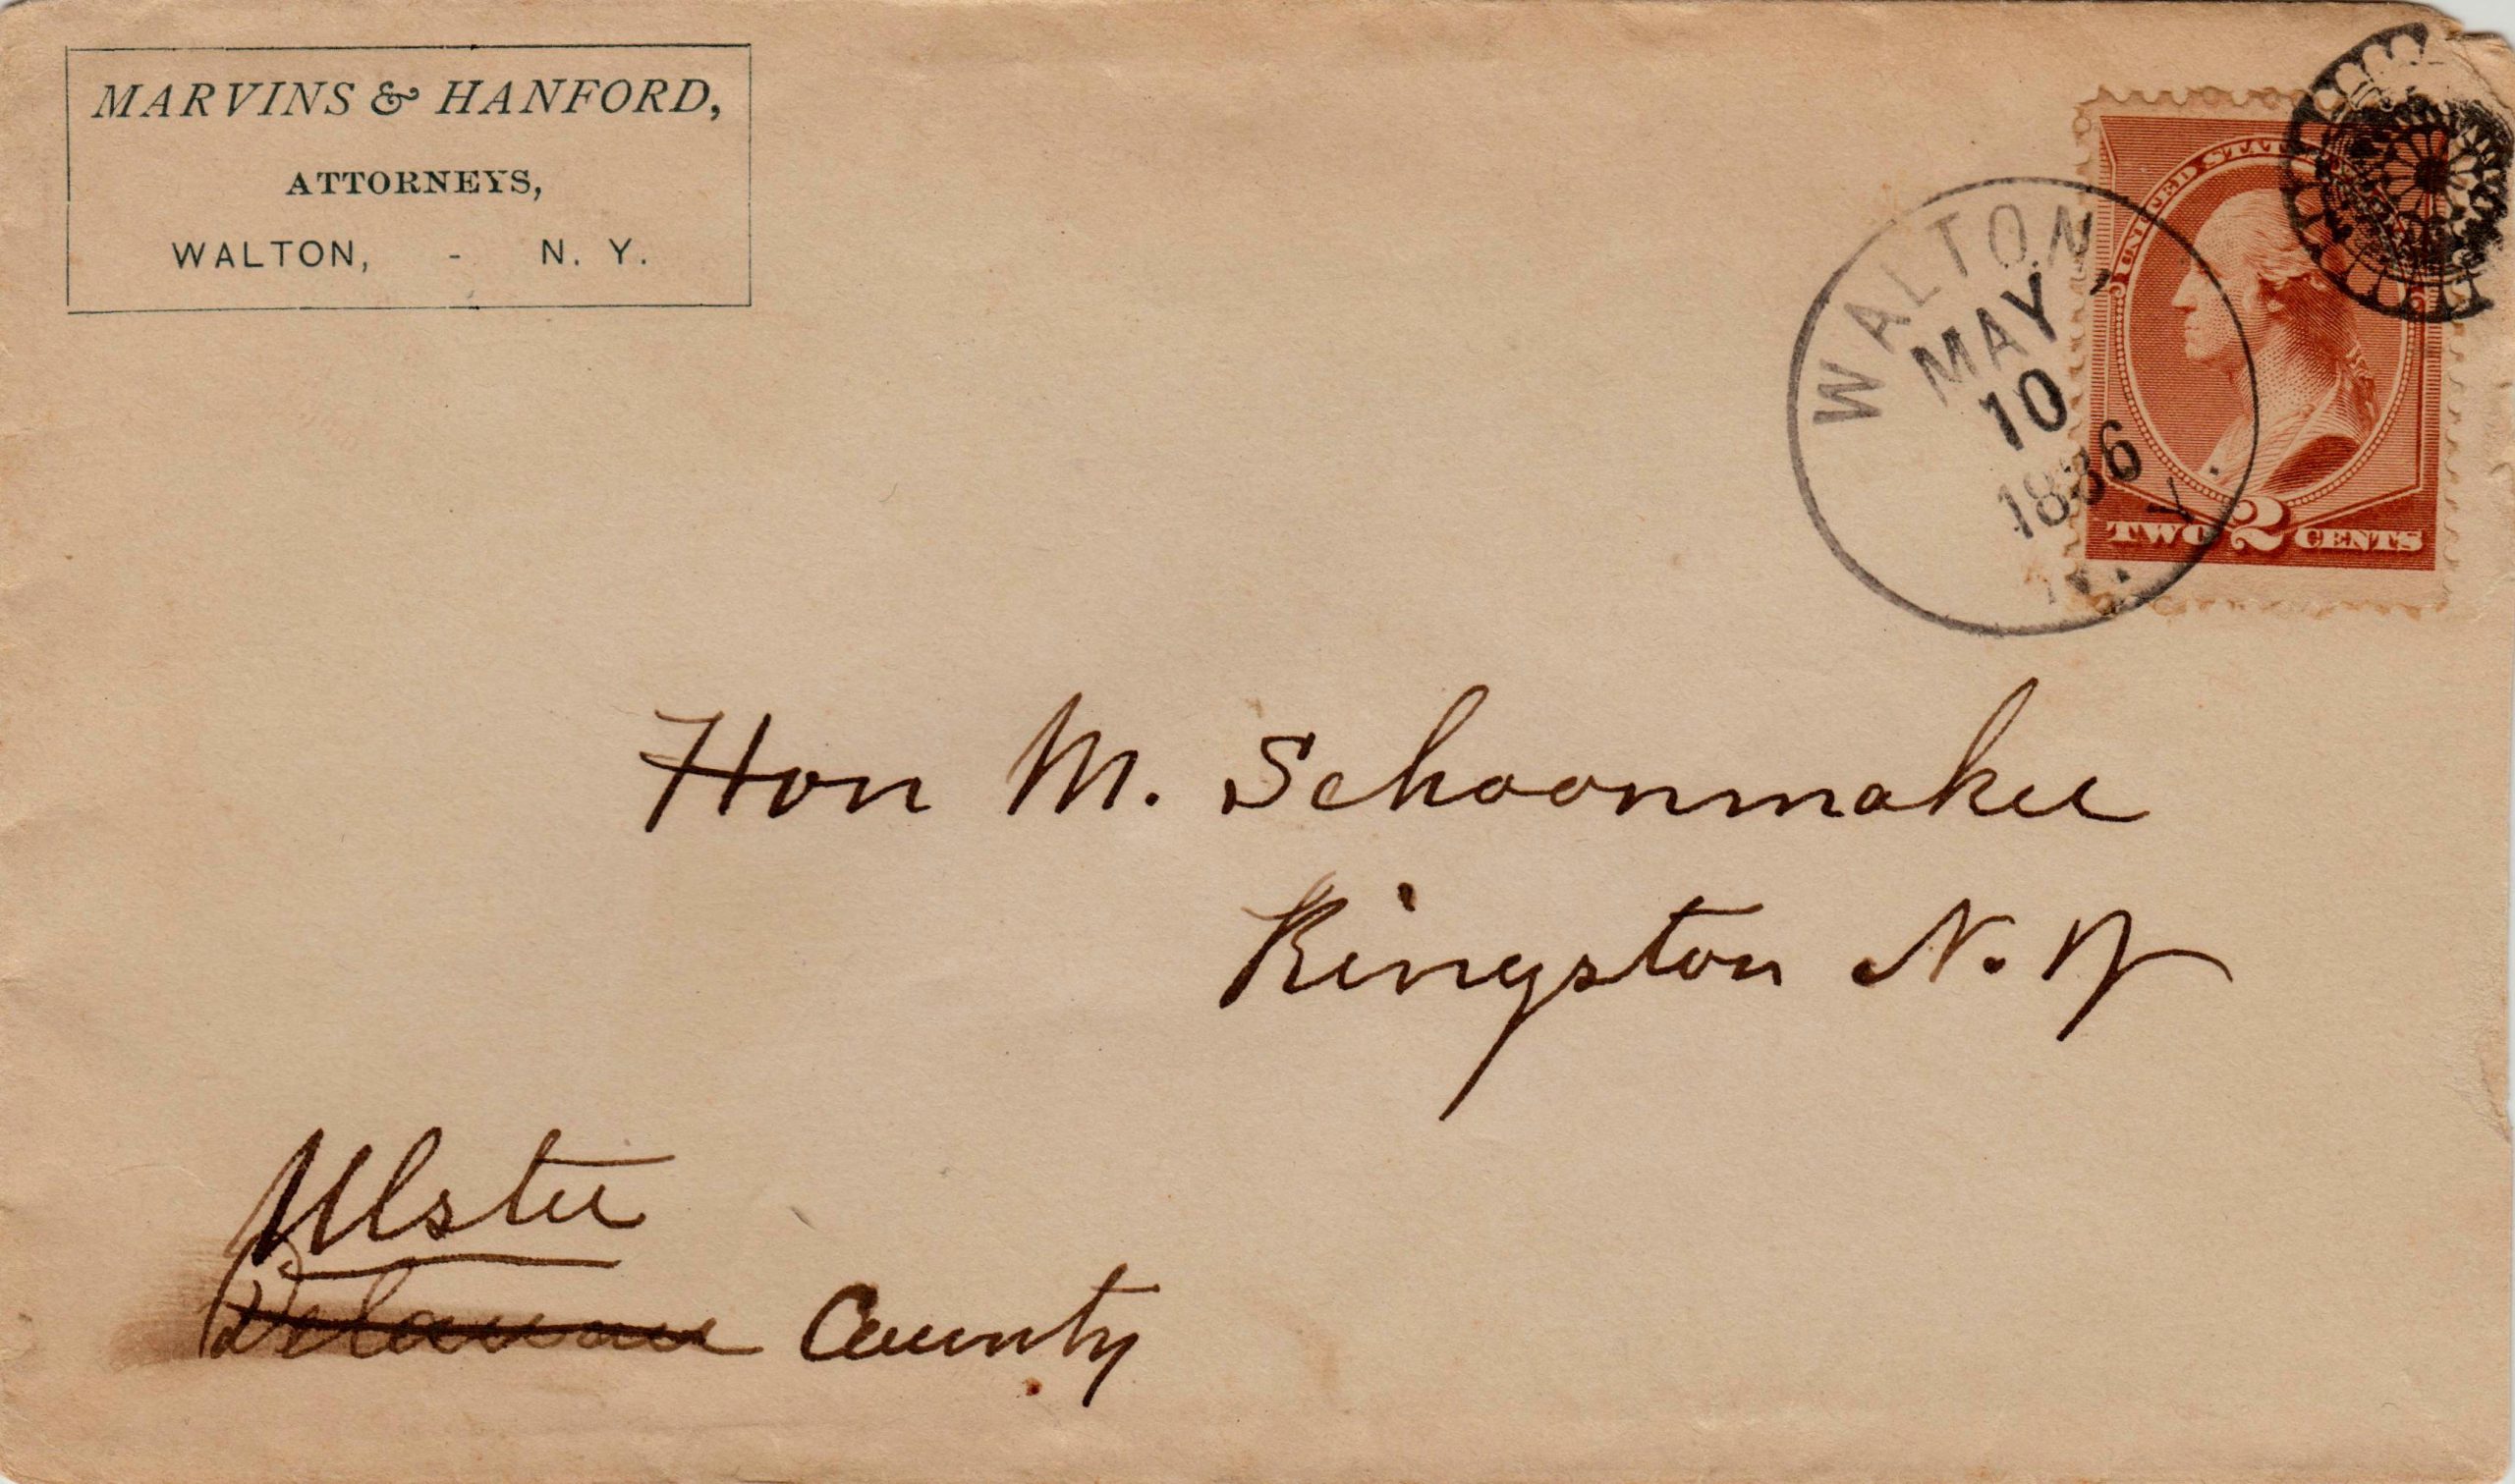 MARVINS & HANFORD,
ATTORNEYS,
WALTON, - N. Y.
UNITED STAT
WALTON,
MAY
10
1886
N. Y.
TWO 2 CENTS
Hon M. Schoonmaker
Kingston N. Y
Ulster
Delaware County